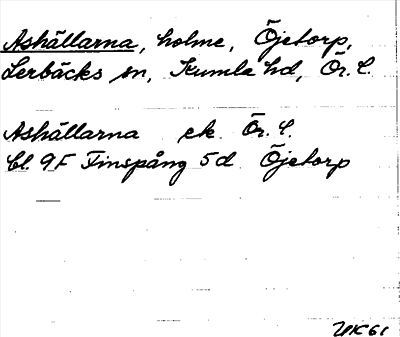 Ashällarna, holme, Öjetorp,
Lerbäcks sn, Kumla hd, Ör. l.
Ashällarna ek. Ör. l.
bl. 9F Finspång 5d Öjetorp
UK61